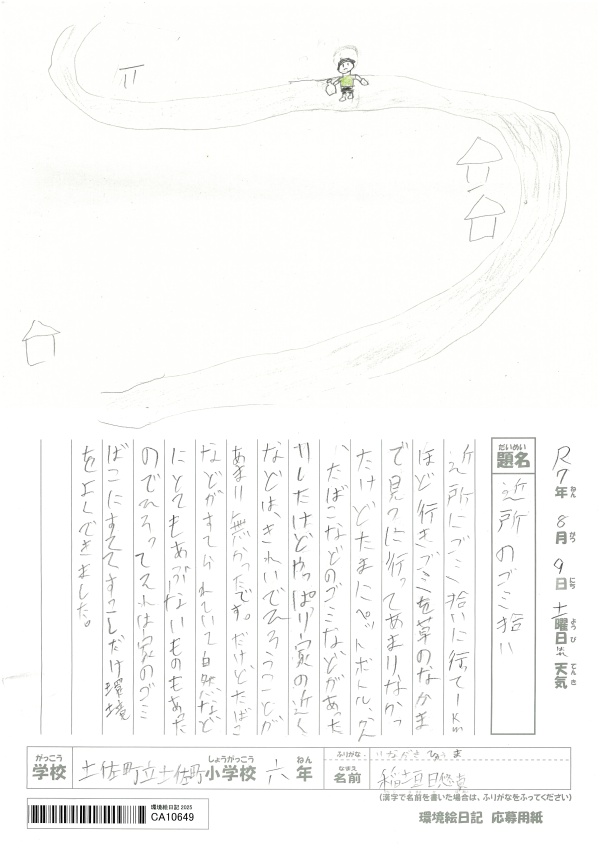 R7年 8月 9日 土曜日 天気
題名 近所のゴミ拾い
近所にゴミ拾いに行って1km
ほど行きゴミを草のなかま
で見つに行ってあまりなかっ
たけどたまにペットボトル、カン
、たばこなどのゴミなどがあった
りしたけどやっぱり家の近く
などは、きれいでひろうことが
あまり無かったです。だけどたばこ
などがすてられていて自然など
にとてもあぶないものもあった
のでひろってそれは家のゴミ
ばこにすててすこしだけ環境
をよくできました。
がっこう 学校 土佐町立土佐町小学校 六年
ふりがな いながき ひゅうま
なまえ 名前 稲垣日悠真
(漢字で名前を書いた場合は、ふりがなをふってください)
環境絵日記 2025
CA10649
環境絵日記 応募用紙